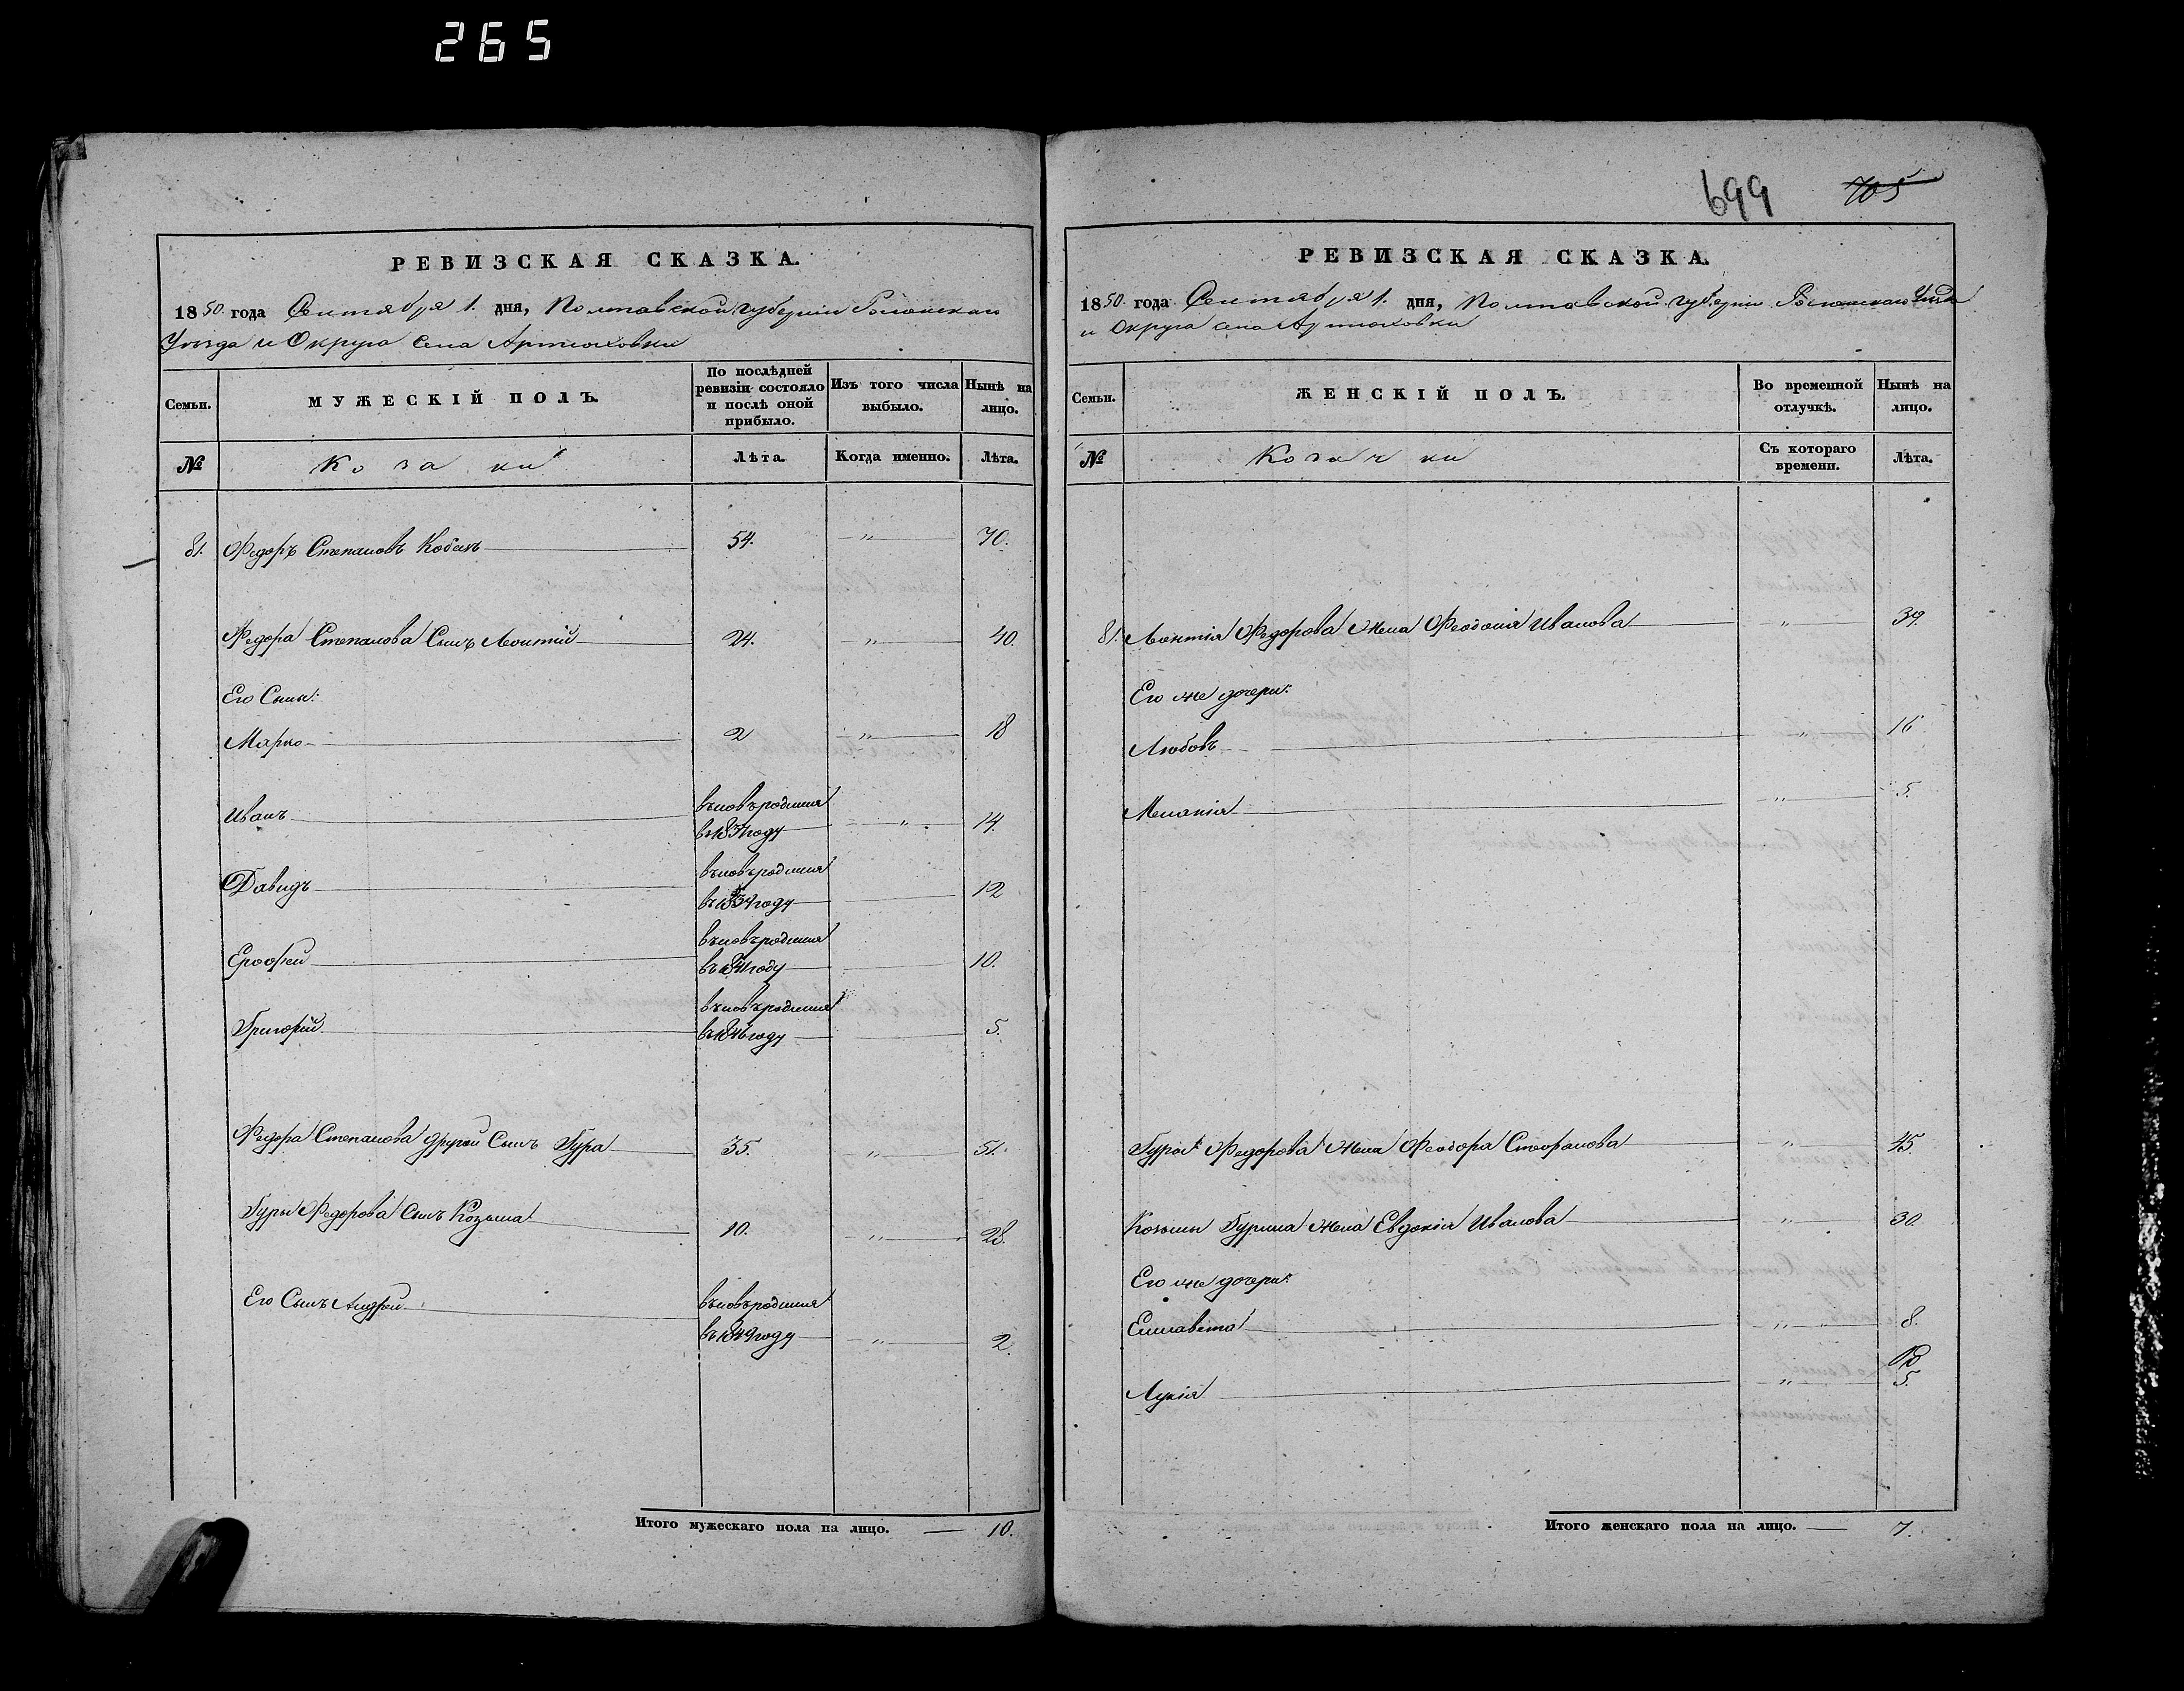 265
РЕВИЗСКАЯ СКАЗКА.
1850. года Сентября 1. дня, Полтавской губернии Роменскаго
Уезда и Округа села Артюховки
Семьи. МУЖЕСКІЙ ПОЛЪ. По послѣдней ревизіи состояло и послѣ оной прибыло. Изъ того числа выбыло. Нынѣ на лицо.
№ Козаки Лѣта. Когда именно. Лѣта.
81. Федоръ Степановъ 54. " 70.
Федора Степанова Сынъ Леонтій 24. " 40.
Его Сыны:
Марко 2 " 18
Иванъ вновьродился в 1837 году " 14.
Давидъ вновьродился 12
Ерофей вновьродился въ 1841 году 10.
Григорій вновьродился въ 1846 году 5.
Федора Степанова другой Сынъ Гура 35. " 51.
Гуры Федорова Сынъ Козьма 10. " 28.
Его Сынъ Андрей вновьродился въ 1849 году " 2.
Итого мужескаго пола на лицо. — 10.
699 705
РЕВИЗСКАЯ СКАЗКА.
1850. года Сентября 1. дня, Полтавской губерніи Роменскаго Уезда
и Округа села Артюховки
Семьи. ЖЕНСКІЙ ПОЛЪ. Во временной отлучкѣ. Нынѣ на лицо.
№ Козачки Съ котораго времени. Лѣта.
81. Леонтія Федорова жена Феодосія Иванова " 39.
Его же дочери:
Любовь " 16
Меланія " 5.
Гура Федорова жена Феодора Стефанова " 45.
Козьмы Гурина жена Евдокія Иванова " 30.
Его же дочери:
Елисавета " " 8.
Лукія " 5.
Итого женскаго пола на лицо. — 7.